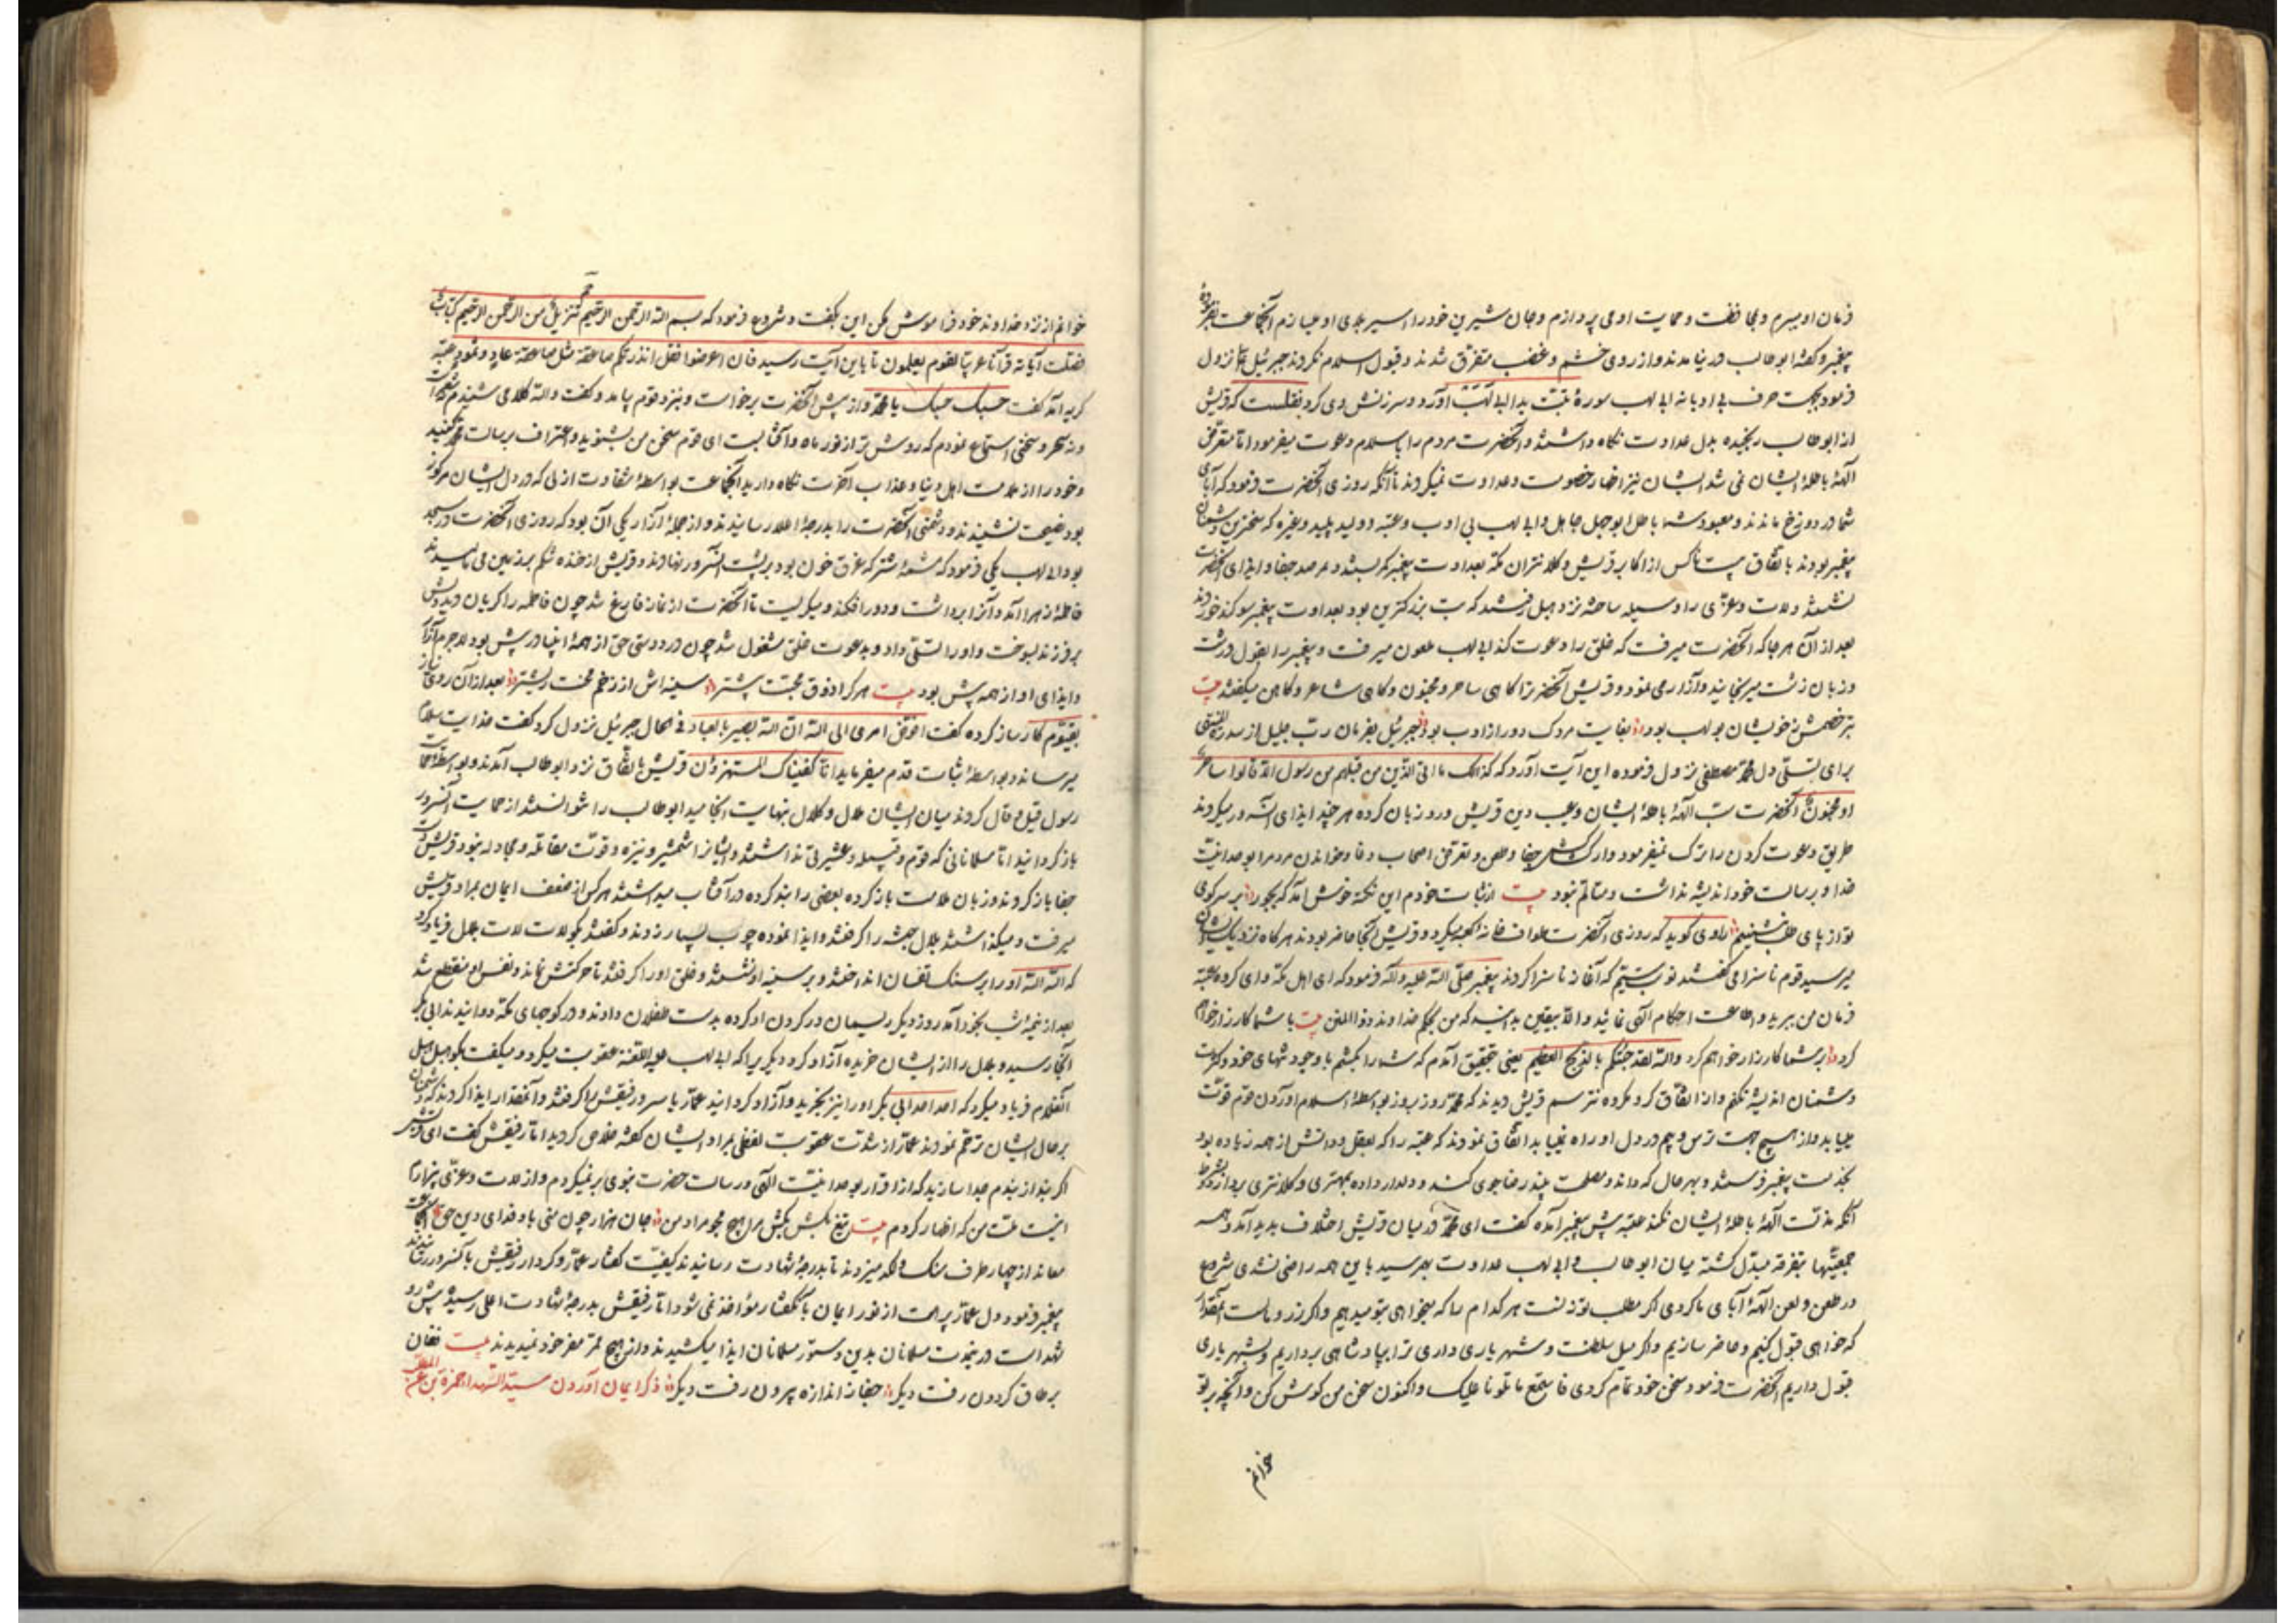 فرمان او میبرم و بمحافظت و حمایت او می پردازم و جان شیرین خود را اسیر بلای او میسازم آنجماعت بفرموده
پیغمبر و گفتهٔ ابوطالب در نیامدند و از روی خشم و غضب متفرق شدند و قبول اسلام نکردند جبرئیل نزول
فرمود بجهت حرف بی ادبانهٔ ابی لهب سورهٔ تبت یدا ابی لهب آورد و سرزنش وی کرد نقلست که قریش
از ابوطالب رنجیده بدل عداوت نگاه داشتند و آنحضرت مردم را باسلام دعوت میفرمود اما متعرض
الههٔ باطلهٔ ایشان نمی شد ایشان نیز اظهار خصومت و عداوت نمیکردند تا آنکه روزی آنحضرت فرمود که آبای
شما در دوزخ ماندند و معبود شما باطل ابوجهل جاهل و ابی لهب بی ادب و عتبه و ولید پلید و غیره که دشمنان
پیغمبر بودند باتفاق بیست کس از اکابر قریش و کلانتران مکه بعداوت پیغمبر کمر بستند و درصد جفا و ایذای آنحضرت
نشستند و لات و عزی را وسیله ساخته نزد هبل رفتند که بت بزرگترین بود بعداوت پیغمبر سوگند خوردند
بعد از آن هر جا که آنحضرت میرفت که خلق را دعوت کند ابی لهب ملعون میرفت و پیغمبر را بقول درشت
و زبان زشت میرنجانید و آزار می نمود و قریش آنحضرت را گاهی ساحر و مجنون و گاهی شاعر و کاهن میگفتند بیت
بتر خصمش ز خویشان بولهب بود بغایت مردک دور از ادب بود جبرئیل بفرمان رب جلیل از سدرة المنتهی
برای تسلی دل محمد مصطفی نزول فرموده این آیت آورد که کذلک ما اتی الذین من قبلهم من رسول الا قالوا ساحر
او مجنون آنحضرت سب الههٔ باطلهٔ ایشان و عیب دین قریش ورد زبان کرده هر چند ایذای آنسرور میکردند
طریق دعوت کردن را ترک نمیفرمود و از جفا و طعن و تعرض اصحاب دغا و خواندن مردم را بوحدانیت
خدا و برسالت خود اندیشه نداشت و متألم نبود بیت از ثبات خودم این نکته خوش آمد که بجور بر سر کوی
تو از پای طلب ننشستم راوی گوید که روزی آنحضرت طواف خانه کعبه میکرد و قریش آنجا حاضر بودند هرگاه نزدیک ایشان
میرسید قوم ناسزا می گفتند نوبت سیم که آغاز ناسزا کردند پیغمبر صلی الله علیه و آله فرمود که ای اهل مکه وای گروه عتبه
فرمان من برید و اطاعت احکام الهی نمائید والا بیقین بدانید که من بحکم خداوند ذوالمنن بیت با شما کارزار خواهم
کرد بر شما کار زار خواهم کرد والله لقد جئتکم بالذبح العظیم یعنی بتحقیق آمدم که شما را بکشم با وجود تنهای خود و کثرت
دشمنان اندیشه نکنم و از اتفاق کردن گروه نترسم قریش دیدند که محمد روز بروز بواسطهٔ اسلام آوردن قوم قوت
مییابد و از هیچ جهت ترس و بیم در دل او راه نمییابد اتفاق نمودند که عتبه را که بعقل و دانش از همه زیاده بود
بخدمت پیغمبر فرستند و بهر حال که داند و مصلحت بیند رضاجوی کند و دلدار داده بمهتری و کلانتری بردارد بشرط
آنکه مذمت الههٔ باطلهٔ ایشان نکند عتبه پیش پیغمبر آمده گفت ای محمد در میان قریش اختلاف پدید آمد و همه
جمعیتها بتفرقه مبدل گشته میان ابوطالب و ابی لهب عداوت بهم رسید باین همه راضی نشدی شروع
در طعن و لعن الههٔ آبای ما کردی اگر مطلب تو زنست هر کدام را که میخواهی بتو میدهیم و اگر زر و مالست آنقدر
که خواهی قبول کنیم و حاضر سازیم و اگر میل سلطنت و شهریاری داری ترا بپادشاهی برداریم و بشهریاری
قبول داریم آنحضرت فرمود سخن خود تمام کردی فاستمع ما تلونا علیک و اکنون سخن من گوش کن و آنچه بر تو
خوانم
خوانم از نزد خداوند خود فراموش مکن این بگفت و شروع فرمود که بسم الله الرحمن الرحیم حم تنزیل من الرحمن الرحیم کتاب
فصلت آیاته قرآنا عربیا لقوم یعلمون تا باین آیت رسید فان اعرضوا فقل انذرتکم صاعقة مثل صاعقة عاد و ثمود عتبه
گریه آمد گفت حسبک حسبک یا محمد و از پیش آنحضرت برخواست و بنزد قوم بیامد و گفت والله کلامی شنیدم نه شعر است
و نه سحر و سخنی استماع نمودم که روشن تر از نور ماه و آفتابست ای قوم سخن من بشنوید و اعتراف برسالت محمد کنید
و خود را از ملامت اهل دنیا و عذاب آخرت نگاه دارید آنجماعت بواسطهٔ شقاوت ازلی که در دل ایشان مرکوز
بود نصیحت نشنیدند و دشمنی آنحضرت را بدرجهٔ اعلا رسانیدند و از جملهٔ آزار یکی آن بود که روزی آنحضرت در سجده
بود ابی لهب یکی فرمود که مشیمهٔ شتر که غرق خون بود بر پشت آنسرور نهادند و قریش از خنده شکم بر زمین می مالیدند
فاطمهٔ زهرا آمد و آنرا برداشت و دور افکند و میگریست تا آنحضرت از نماز فارغ شد چون فاطمه را گریان دید دلش
بر فرزند بسوخت و او را تسلی داد و بدعوت خلق مشغول شد چون در دوستی حق از همهٔ انبیا در پیش بود لاجرم آزار
و ایذای او از همه پیش بود بیت هر کرا ذوق محبت پیشتر سینه اش از زخم محنت ریشتر بعد از آن روی نیاز
بقیوم کارساز کرده گفت افوض امری الی الله ان الله بصیر بالعباد فی الحال جبرئیل نزول کرد گفت خدایت سلام
میرساند و بواسطهٔ ثبات قدم میفرماید انا کفیناک المستهزؤن قریش باتفاق نزد ابوطالب آمدند و بواسطهٔ حمایت
رسول قیل و قال کردند میان ایشان ملال و کلال بنهایت انجامید ابوطالب را نتوانستند از حمایت آنسرور
بازگردانید اما مسلمانانی که قوم و قبیله و عشیرتی نداشتند و ایشان را شمشیر و نیزه و قوت مقاتله و مجادله نبود قریش دست
جفا باز کردند و زبان ملامت باز کرده بعضی را بند کرده در آفتاب میداشتند هر کس از ضعف ایمان بمراد قریش
میرفت و میگذاشتند بلال حبشه را گرفتند و ایذا نموده چوب بسیار زدند و گفتند بگو لات لات بلال فریاد کرد
که الله الله او را بر سنک تفسان انداختند و بر سینه او نشستند و خلق او را گرفتند تا حرکتش نماند و نفس او منقطع شد
بعد از نیمهٔ شب بخود آمد روز دیگر ریسمان در گردن او کرده بدست طفلان دادند و در کوچهای مکه دوانیدند ابی بکر
آنجا رسید و بلال را از ایشان خریده آزاد کرد دیگری را که ابی لهب علیه اللعنة عقوبت میکرد و میگفت بگو هبل هبل
آنغلام فریاد میکرد که احد احد ابی بکر او را نیز بخرید و آزاد گردانید عمار یاسر و رفیقش را گرفتند و آنمقدار ایذا کردند که دشمنان
بر حال ایشان ترحم نمودند عمار از شدت عقوبت لفظی بمراد ایشان گفته خلاص گردید اما رفیقش گفت ای قریش
اگر بند از بندم جدا سازید که از اقرار بوحدانیت الهی و رسالت حضرت نبوی برنمیگردم و از لات و عزی بیزارم
اینست ملت من که اظهار کردم بیت تیغ بکش بکش مرا هیچ مجو مراد من جان هزار چون منی باد فدای دین حق آنجماعت
معاند از چهار طرف سنک و لگد میزدند تا بدرجهٔ شهادت رسانیدند کیفیت گفتار عمار و کردار رفیقش با آنسرور رسانیدند
پیغمبر فرمود دل عمار پر است از نور ایمان باین گفتار مؤاخذ نمی شود اما رفیقش بدرجهٔ شهادت اعلی رسید پیش رو
شهداست در بهشت مسلمانان بدین دستور مسلمانان ایذا میکشیدند و از هیچ ممر مفر خود نمیدیدند بیت فغان
بر طاق گردون رفت دیگر جفا ز اندازه بیرون رفت دیگر ذکر ایمان آوردن سید الشهدا حمزة بن عبد المطلب